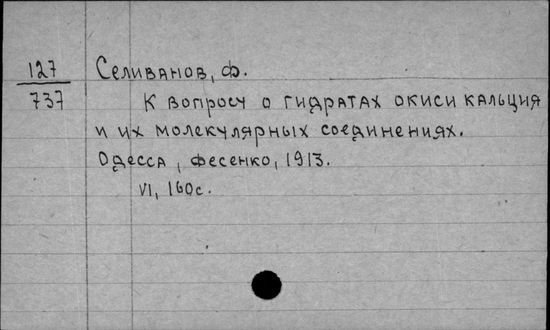 127 Селиванов, Ф.
737 К вопросу о гидратах окиси кальция
и их молекулярных соединениях.
Одесса, Фесенко, 1913.
VI, 160с.